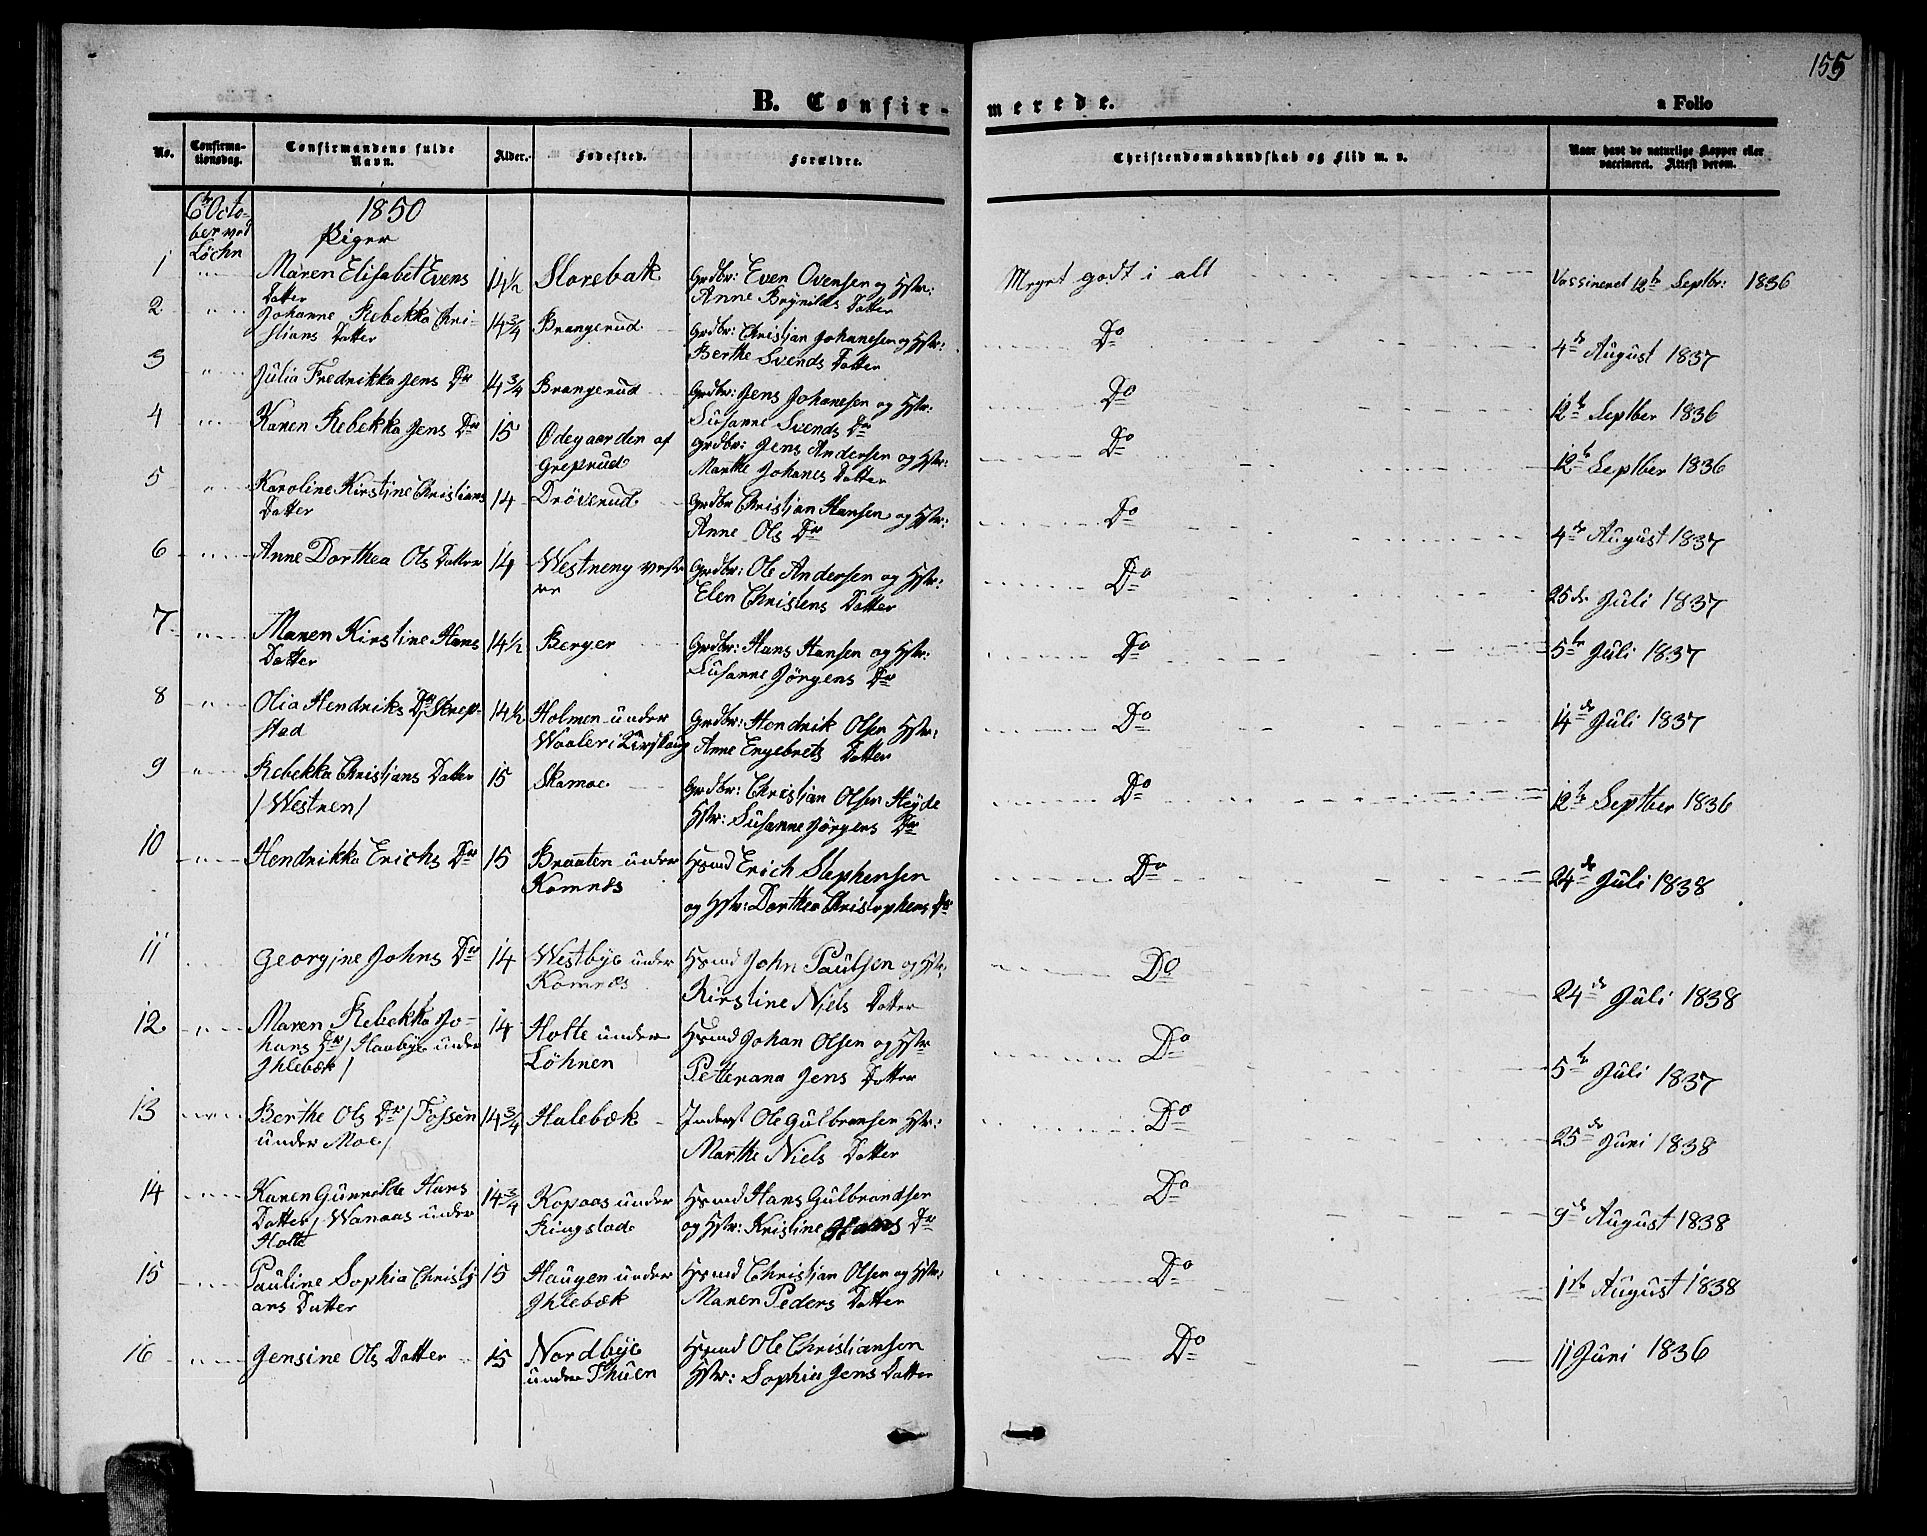 155
B. Confirmerede.
a Folio
No. Confirmationsdag. Confirmandens fulde Navn. Alder. Fødested. Forældre. Christendomskundskab og Flid m. v. Naar havt de naturlige Kopper eller vaccineret. Attest derom.
6te October ved Löchn
1850
Piger
1 " Maren Elisabet Evens Datter 14 1/2 Storebak Grdbr: Even Ovensen og Hstr: Anne Brynilds Datter Meget godt i alt Vassineret 12te Septbr: 1836
2 " Johanne Rebekka Christians Datter 14 3/4 Brangerud Grdbr: Christian Johanesen og Hstr: Berthe Svends Datter Do 4de August 1837
3 " Julia Fredrikka Jens Dr 14 3/4 Brangerud Grdbr: Jens Johanesen og Hstr: Susanne Svends Dr Do 12te Septber 1836
4 " Karen Rebekka Jens Dr 15 Ödegaarden af Greprud Grdbr: Jens Andersen og Hstr: Marthe Johanes Datter Do 12te Septber 1836
5 " Karoline Kirstine Christians Datter 14 Dröverud Grdbr Christian Hansen og Hstr: Anne Ols Dr Do 4de August 1837
6 " Anne Dorthea Ols Datter 14 Westneng Grdbr: Ole Andersen og Hstr: Elen Christens Datter Do 25de Juli 1837
7 " Maren Kirstine Hans Datter 14 1/2 Berger Grdbr: Hans Hansen og Hstr: Susanne Jörgens Dr Do 5te Juli 1837
8 " Olia Hendriks Dr Skrepstad 14 1/2 Holmen under Waaler i Grdbr: Hendrik Olsen Hstr: Anne Engebrets Datter Do 14de Juli 1837
9 " Rebekka Christians Datter /Westnen/ 15 Skamoe Grdbr: Christian Olsen Heyde Hstr: Susanne Jörgens Dr Do 12te Septber 1836
10 " Hendrikka Erichs Dr 15 Braaten under Komnæs Hsmd Erich Stephensen og Hstr: Dorthea Christophers Dr Do 24de Juli 1838
11 Georgine Johns Dr 14 Westbye under Komnæs Hsmd John Paulsen og Hstr. Kirstine Niels Datter Do 24de Juli 1838
12 " Maren Rebekka Johans Dr /Haabye under Ihlebæk/ 14 Holte under Löhnen Hsmd Johan Olsen og Hstr Petterana Jens Datter Do 5te Juli 1837
13 " Berthe Ols Dr /Fossen under Moe/ 14 3/4 Halebæk Inderst Ole Gulbransen Hstr: Marthe Niels Datter Do 25de Juni 1838
14 Karen Gunnilde Hans Datter, Wanaas under Holte 14 3/4 Kopaas under Ringstade Hsmd Hans Gulbrandsen og Hstr: Kristine Hans Dr Do 9de August 1838
15 Pauline Sophia Christians Datter 15 Haugen under Ihlebæk Hsmd Christian Olsen og Hstr: Maren Peders Datter Do 1ste August 1838
16 " Jensine Ols Datter 15 Nordbye under Thuen Hsmd Ole Christiansen Hstr: Sophia Jens Datter Do 11 Juni 1836